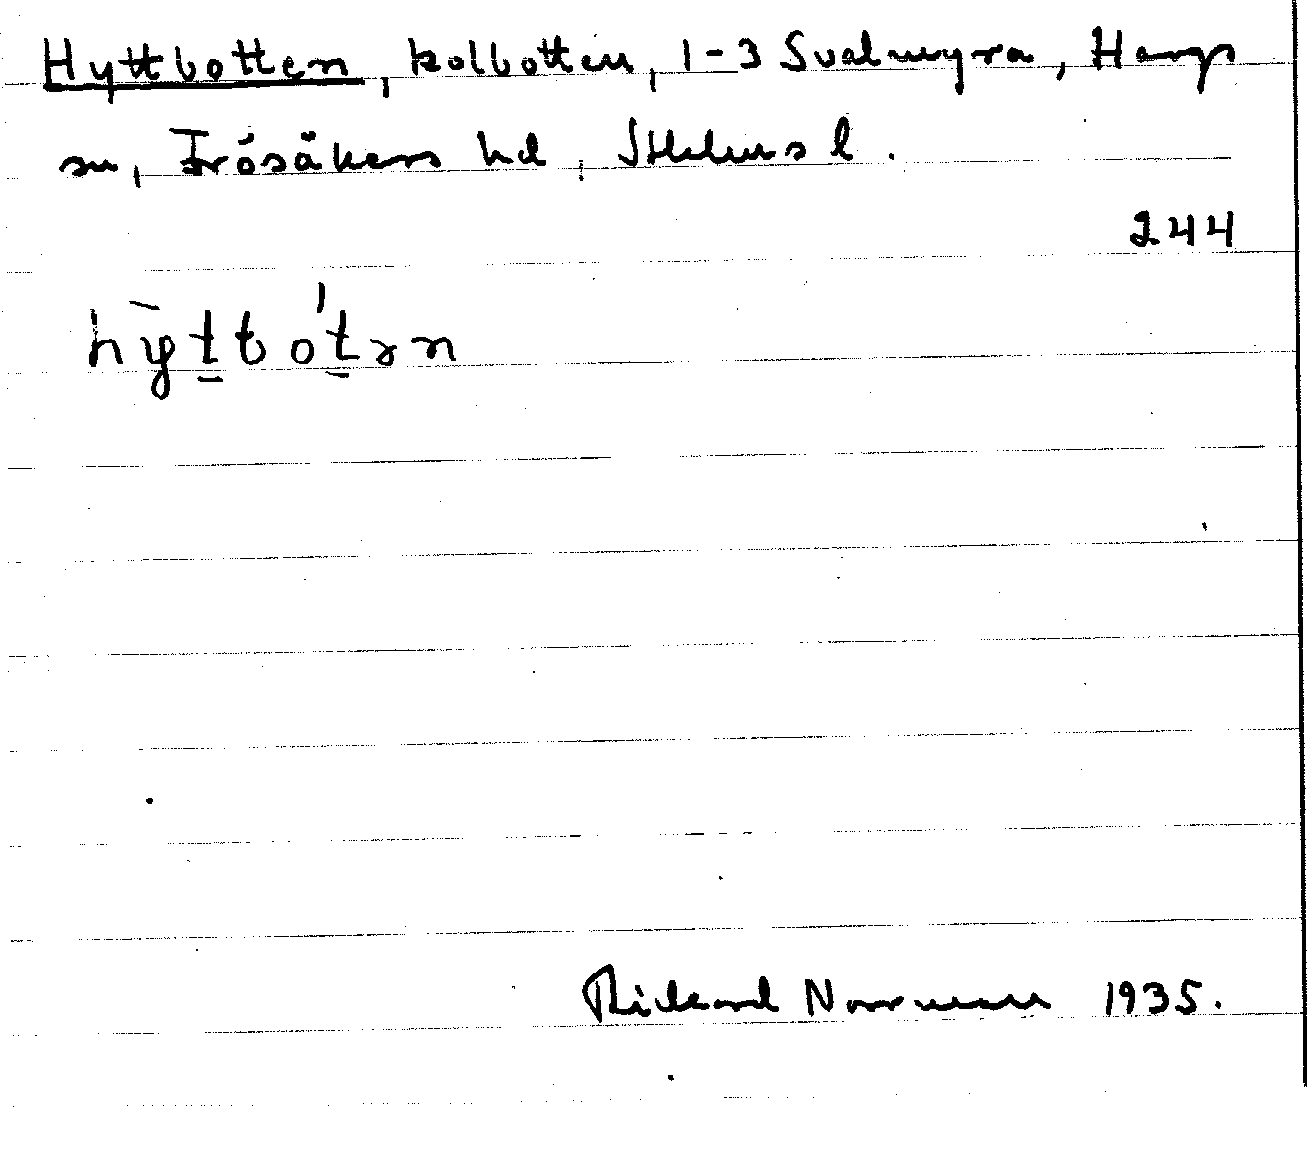 Hyttbotten, kolbotten, 1-3 Svalmyra, Hargs
sn, Frösåkers hd, Sthlms l.
244
hỳtbo'tən
Rickard Norrman 1935.